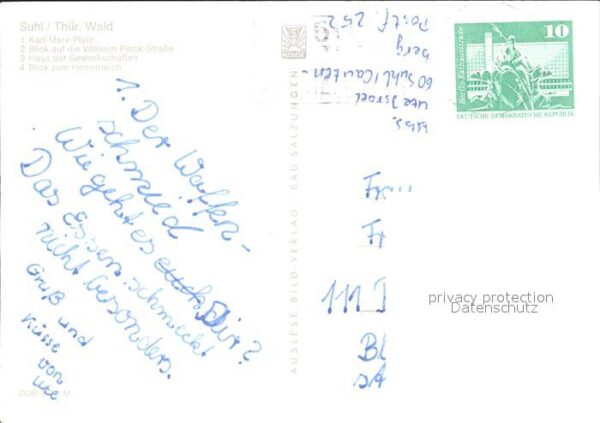 Suhl / Thür. Wald
1 Karl-Marx-Platz
2 Blick auf die Wilhelm-Pieck-Straße
3 Haus der Gewerkschaften
4 Blick zum Herrenteich
1. Der Waffen-
schmied
Wie geht es euch Dir?
Das Essen schmeckt
nicht besonders.
Gruß und
Küsse von
Ute
DDR M
AUSLESE-BILD-VERLAG · BAD SALZUNGEN
Abs.
Ute Israel
60 Suhl / Lauten-
berg
Postf. 252
10
Berlin, Rathausstraße
DEUTSCHE DEMOKRATISCHE REPUBLIK
privacy protection
Datenschutz